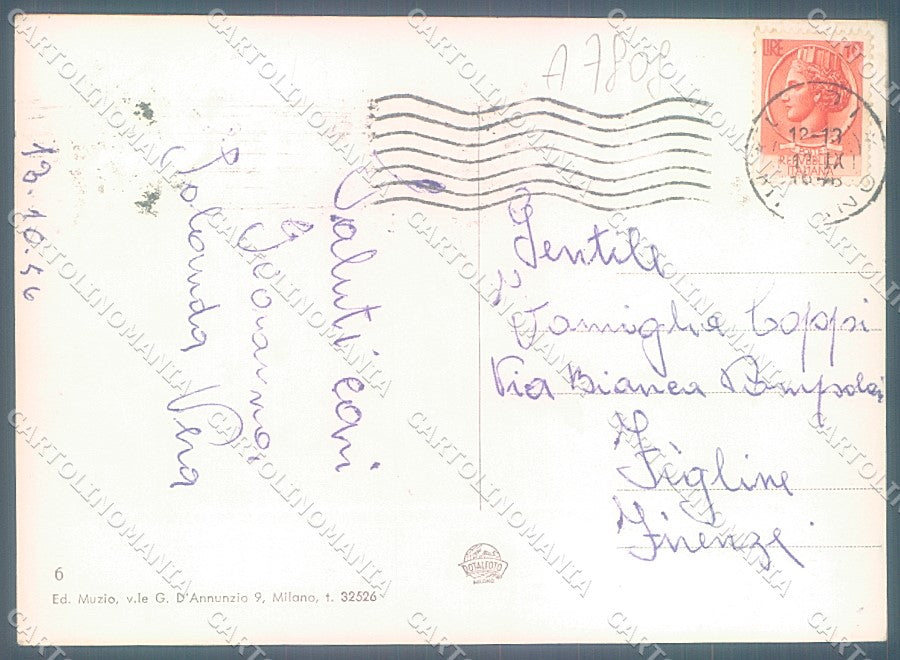 A 7808
LIRE 10
12-13
REPUBBLICA
ITALIANA
13.10.56
Saluti cari
Iolanda Vera
Gentile
Famiglia Coppi
Via Bianca
Fègline
Firenze
TOTALFOTO
MILANO
6
Ed. Muzio, v.le G. D'Annunzio 9, Milano, t. 32526
CARTOLINOMANIA